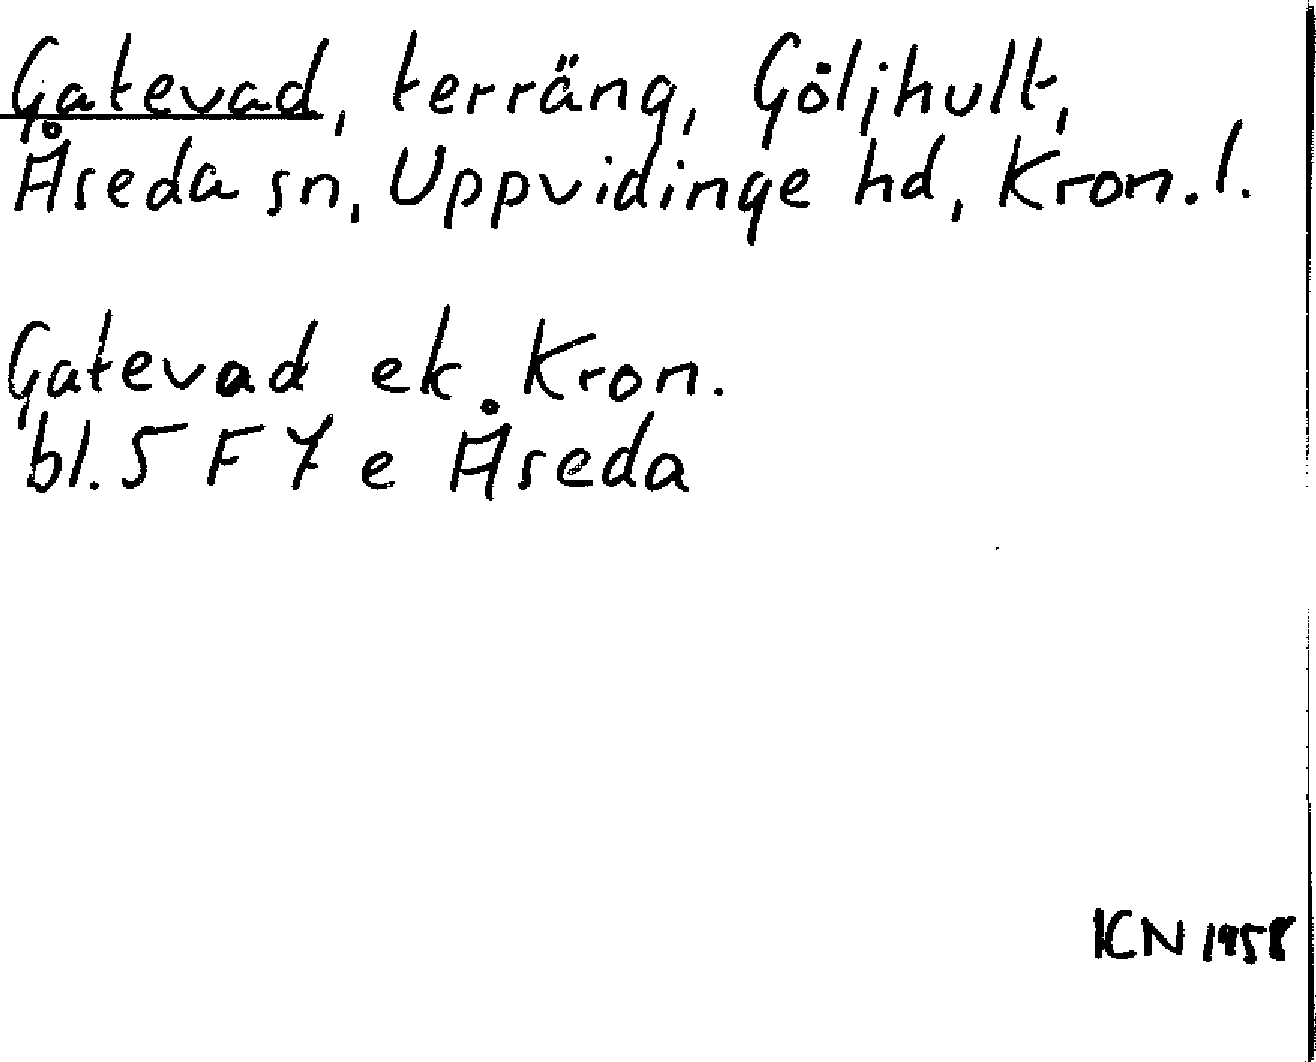 Gatevad, terräng, Göljhult,
Åseda sn, Uppvidinge hd, Kron.l.
Gatevad ek. Kron.
bl. 5 F 7 e Åseda
KN 1958